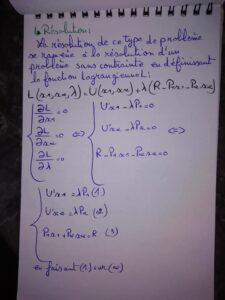 ↳ Résolution:
La résolution de ce type de problème
se ramène à la résolution d'un
problème sans contrainte en définissant
la fonction Lagrangienne:
L(x1,x2,λ)=U(x1,x2)+λ(R-P1x1-P2x2)
∂L/∂x1=0 U'x1-λP1=0
∂L/∂x2=0 <=> U'x2-λP2=0 <=>
∂L/∂λ=0 R-P1x1-P2x2=0
U'x1=λP1 (1)
U'x2=λP2 (2)
P1x1+P2x2=R (3)
en faisant (1)